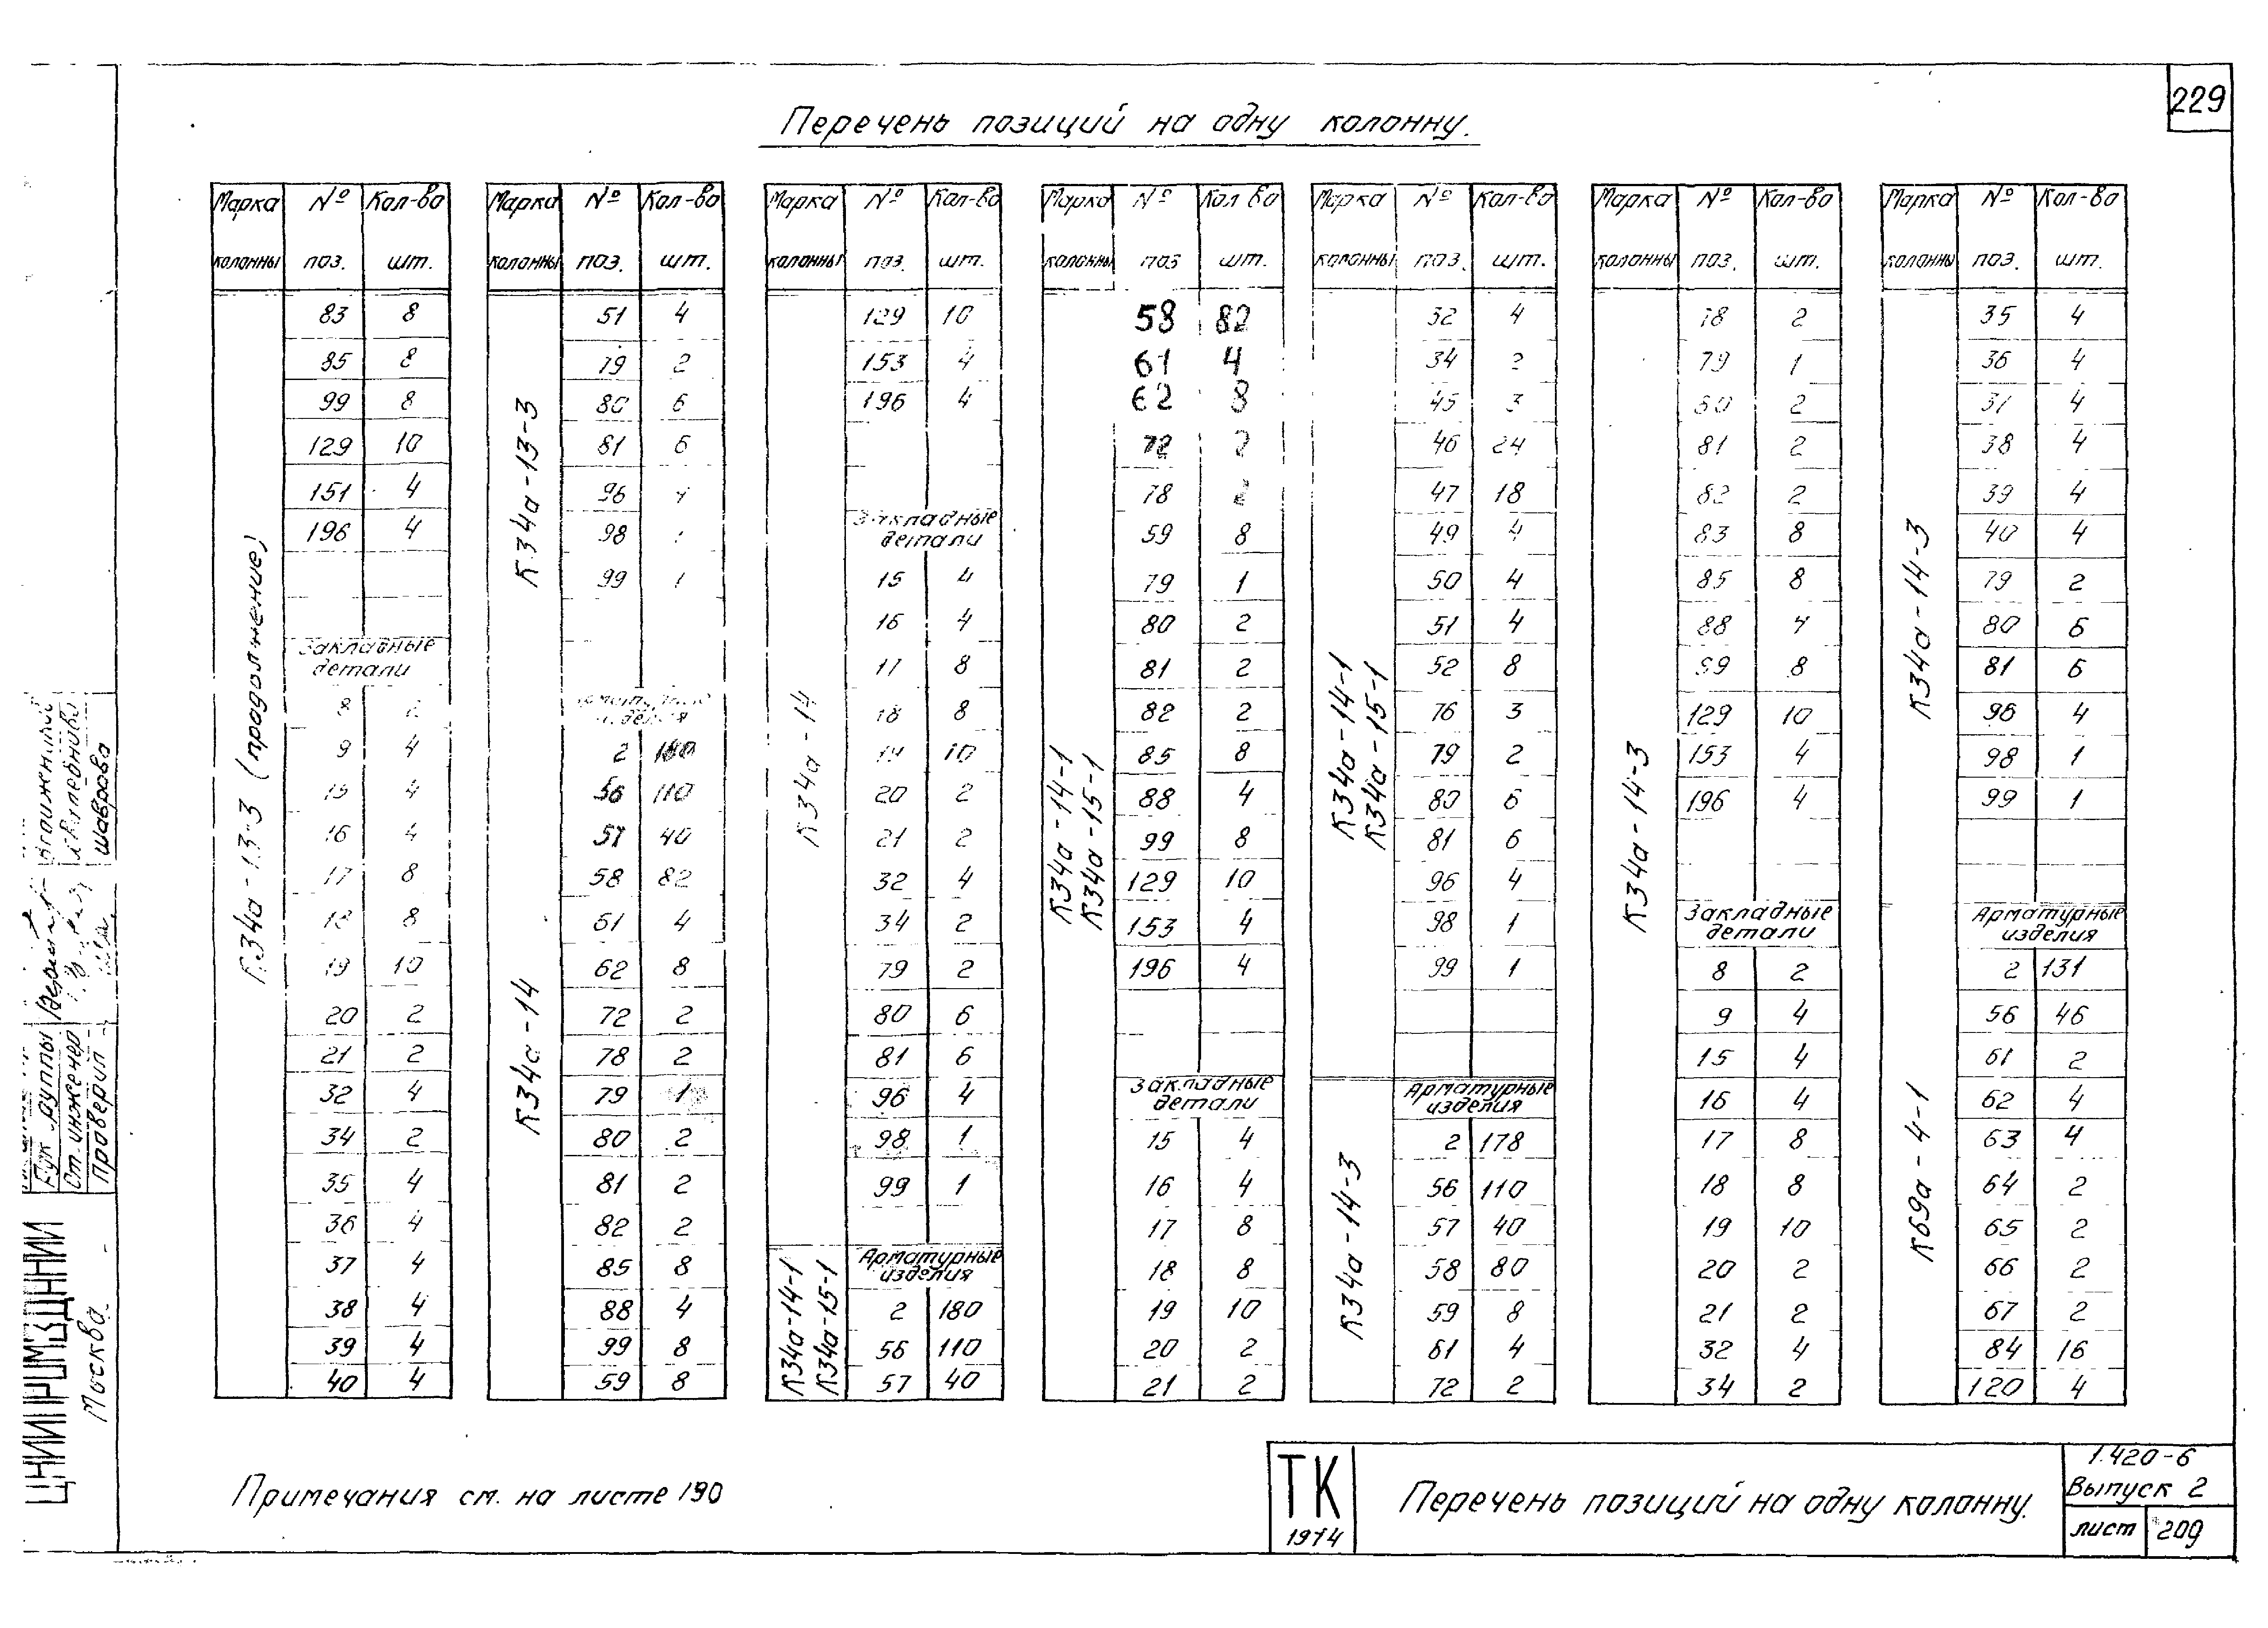 229
Перечень позиций на одну колонну.
Марка колонны № поз. Кол-во шт.
К34а-13-3 (продолжение)
83 8
85 8
99 8
129 10
151 4
196 4
Закладные детали
8 2
9 4
15 4
16 4
17 8
18 8
19 10
20 2
21 2
32 4
34 2
35 4
36 4
37 4
38 4
39 4
40 4
Марка колонны № поз. Кол-во шт.
К34а-13-3
51 4
79 2
80 6
81 6
96
98
99 1
К34а-14
изделия
2 180
56 110
57 40
58 82
61 4
62 8
72 2
78 2
79 1
80 2
81 2
82 2
85 8
88 4
99 8
59 8
Марка колонны № поз. Кол-во шт.
К34а-14
129 10
153 4
196 4
Закладные детали
15 4
16 4
17 8
18 8
19 10
20 2
21 2
32 4
34 2
79 2
80 6
81 6
96 4
98 1
99 1
К34а-14-1
К34а-15-1
Арматурные изделия
2 180
56 110
57 40
Марка колонны № поз Кол во шт.
К34а-14-1
К34а-15-1
58 82
61 4
62 8
72 2
78
59 8
79 1
80 2
81 2
82 2
85 8
88 4
99 8
129 10
153 4
196 4
Закладные детали
15 4
16 4
17 8
18 8
19 10
20 2
21 2
Марка колонны № поз. Кол-во шт.
К34а-14-1
К34а-15-1
32 4
34 2
45 3
46 24
47 18
49 4
50 4
51 4
52 8
76 3
79 2
80 6
81 6
96 4
98 1
99 1
К34а-14-3
Арматурные изделия
2 178
56 110
57 40
58 80
59 8
61 4
72 2
Марка колонны № поз. Кол-во шт.
К34а-14-3
78 2
79 1
80 2
81 2
82 2
83 8
85 8
88 4
99 8
129 10
153 4
196 4
Закладные детали
8 2
9 4
15 4
16 4
17 8
18 8
19 10
20 2
21 2
32 4
34 2
Марка колонны № поз. Кол-во шт.
К34а-14-3
35 4
36 4
37 4
38 4
39 4
40 4
79 2
80 6
81 6
96 4
98 1
99 1
К69а-4-1
Арматурные изделия
2 131
56 46
61 2
62 4
63 4
64 2
65 2
66 2
67 2
84 16
120 4
Примечания см. на листе 190
ТК
1974
Перечень позиций на одну колонну.
1.420-6
Выпуск 2
лист 209
Рук группы
Ст. инженер
Проверил Шаврова
ЦНИИПРОМЗДАНИЙ
Москва